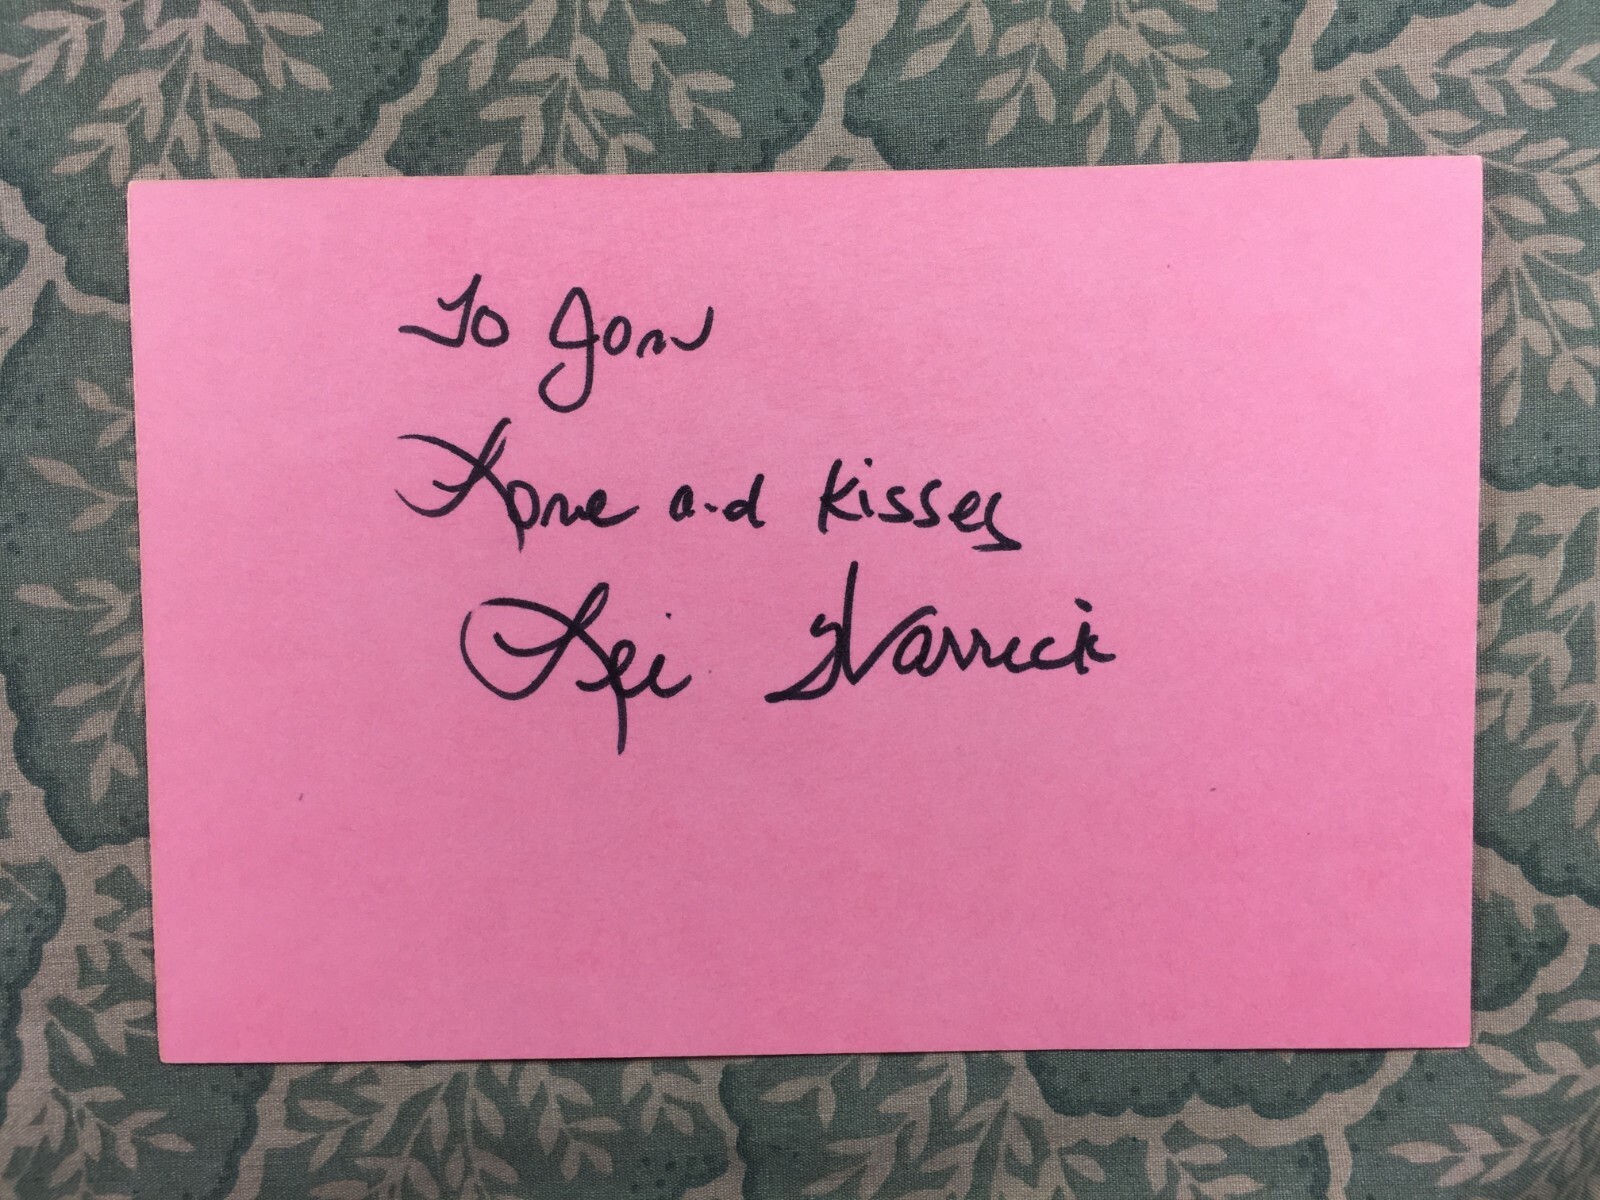 To Jon
Love and kisses
Lei Warrick